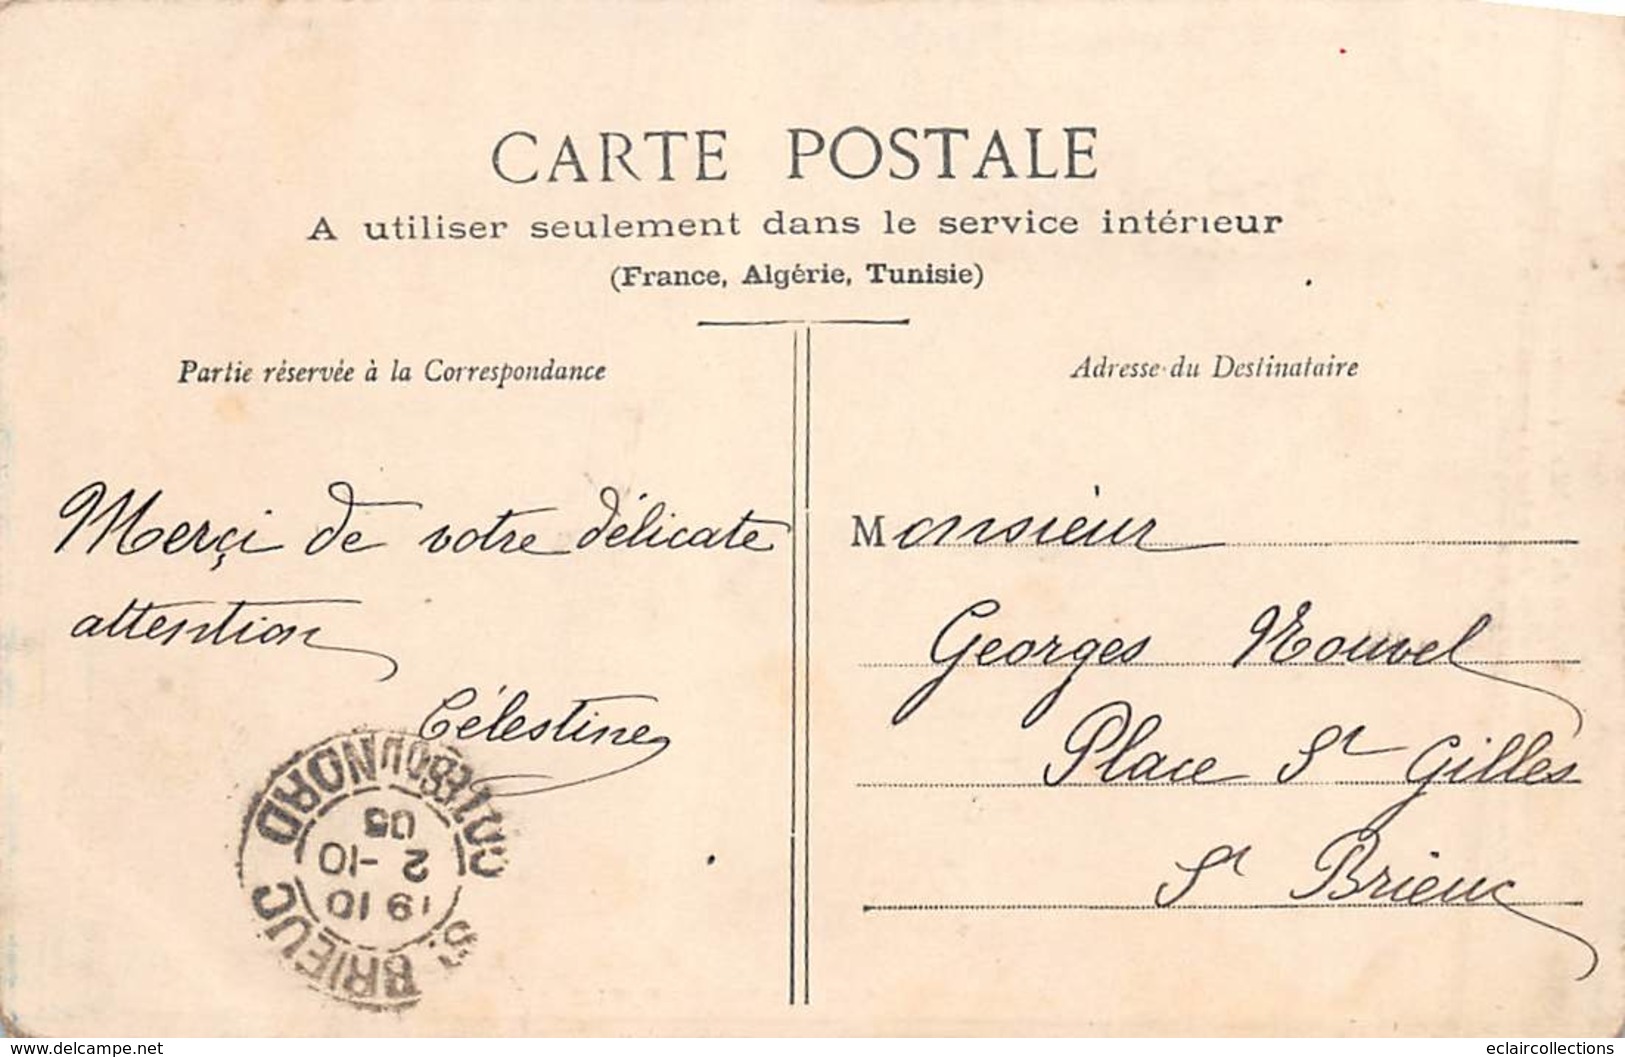 CARTE POSTALE
A utiliser seulement dans le service intérieur
(France, Algérie, Tunisie)
Partie réservée à la Correspondance
Merçi de votre délicate
attention
Célestine
Adresse du Destinataire
Monsieur
Georges Nouvel
Place St Gilles
St Brieuc
St BRIEUC
CÔTES DU NORD
19 10
2 -10
05
www.delcampe.net
eclaircollections